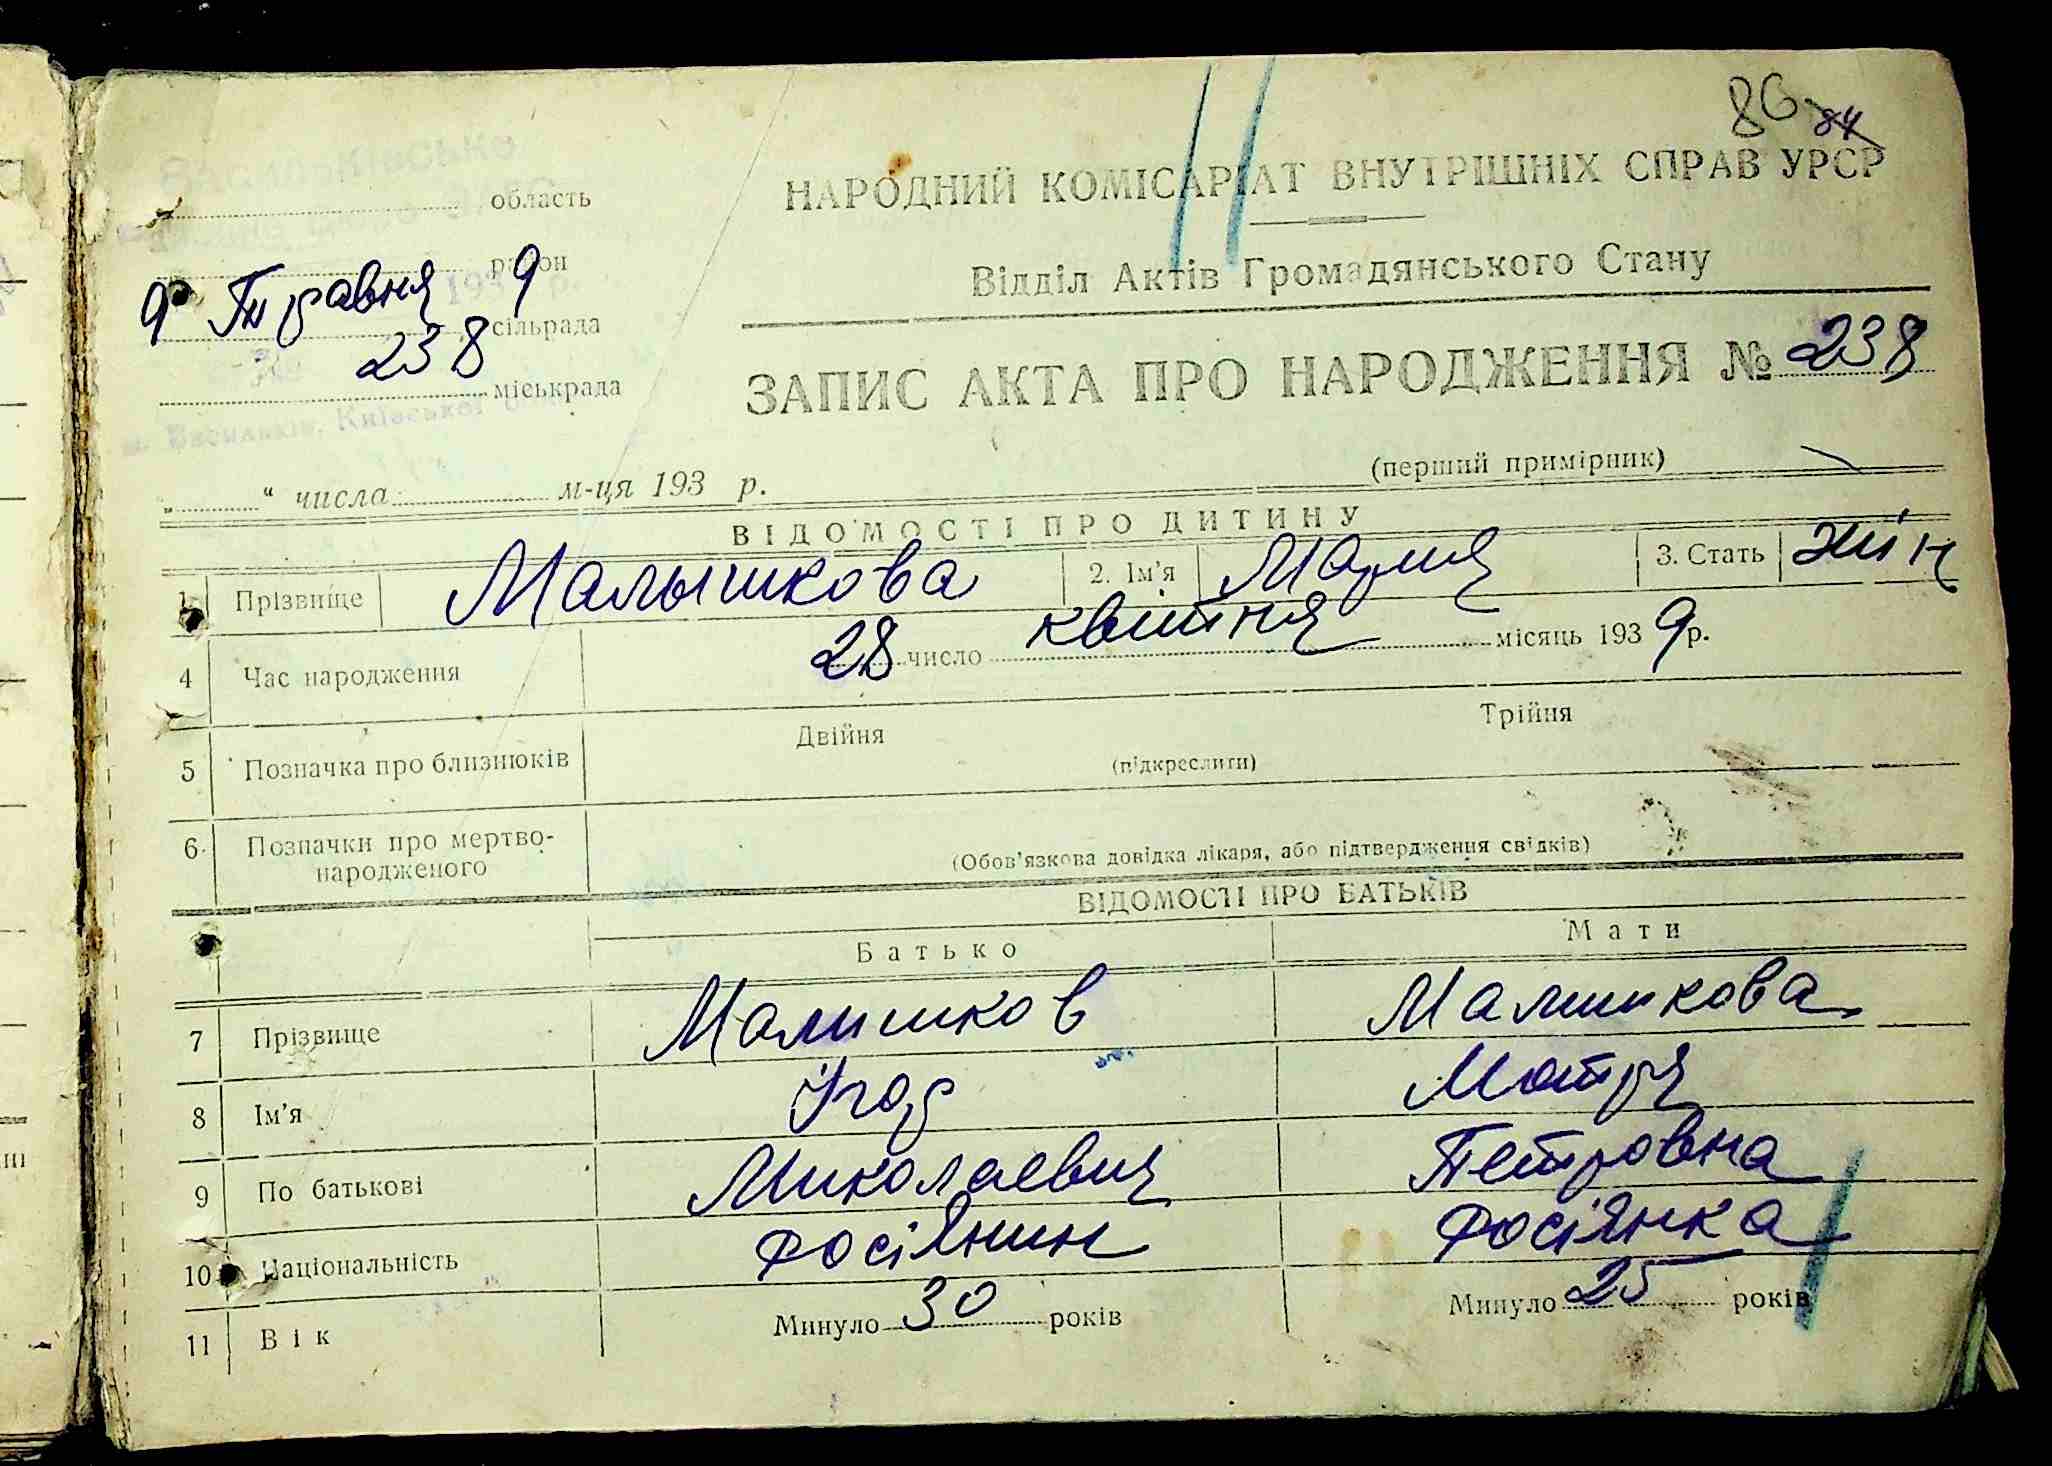 86 84
Васильківське
область
НАРОДНИЙ КОМІСАРІАТ ВНУТРІШНІХ СПРАВ УРСР
район
9 Травня 193 9 р.
Відділ Актів Громадянського Стану
сільрада
238
міськрада
ЗАПИС АКТА ПРО НАРОДЖЕННЯ № 238
м. Васильків, Київської
(перший примірник)
„ “ числа м-ця 193 р.
ВІДОМОСТІ ПРО ДИТИНУ
1 Прізвище Малышкова 2. Ім’я Мария 3. Стать жін
4 Час народження 28 число квітня місяць 1939 р.
5 Позначка про близнюків Двійня Трійня
(підкреслити)
6 Позначки про мертво-
народженого
(Обов’язкова довідка лікаря, або підтвердження свідків)
ВІДОМОСТІ ПРО БАТЬКІВ
Батько Мати
7 Прізвище Малишков Малишкова
8 Ім’я Ігор Мотря
9 По батькові Миколаевич Петровна
10 Національність росіянин росіянка
11 Вік Минуло 30 років Минуло 25 років